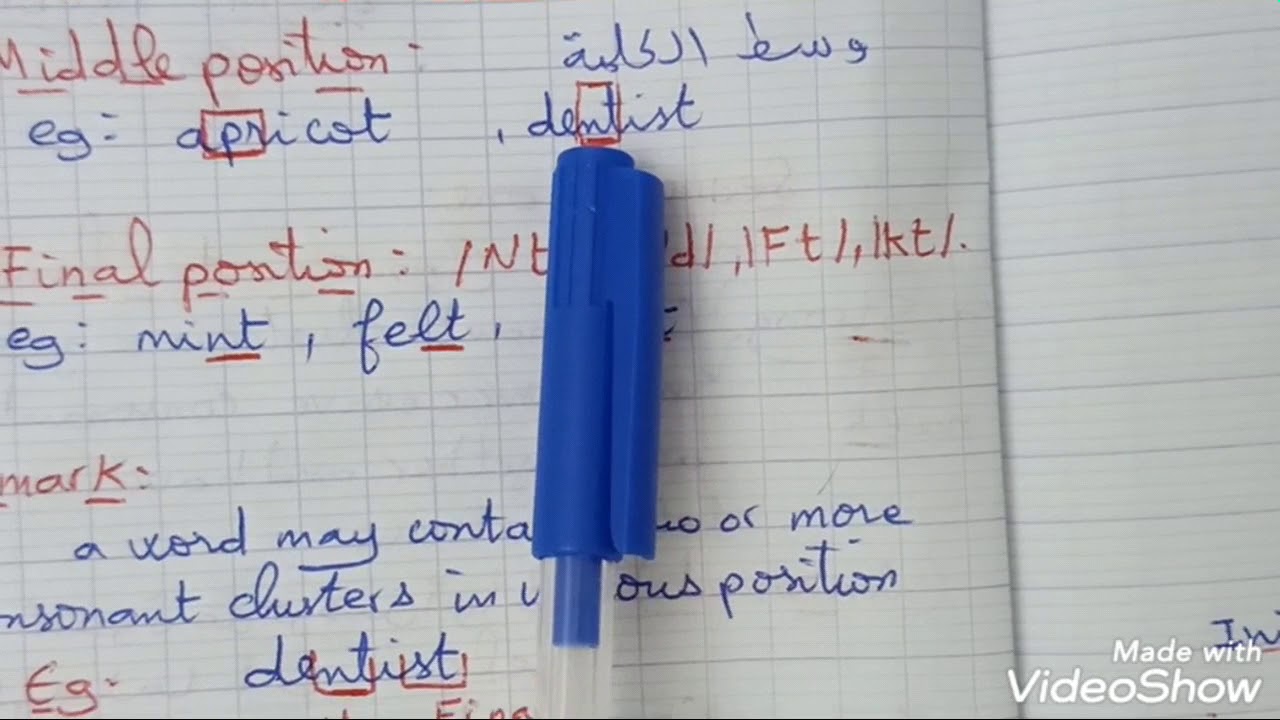 Middle position: وسط الكلمة
eg: apricot , dentist
Final position: /Nt d/, /Ft/, /kt/.
eg: mint, felt,
mark:
a word may conta or more
nsonant clusters in ous position
Eg. dentist
Fina
In
Made with
VideoShow